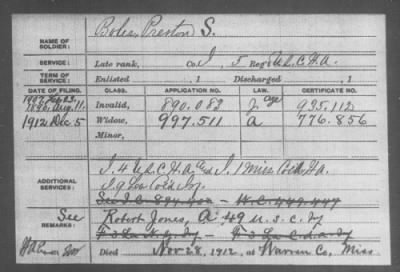 NAME OF SOLDIER: Boles, Preston S.
SERVICE: Late rank, Co. I, 5 Reg't U.S.C.H.A.
TERM OF SERVICE: Enlisted , 1 Discharged , 1
DATE OF FILING. CLASS. APPLICATION NO. LAW. CERTIFICATE NO.
Aug. 11. Invalid, 890.083 Age 935.112
1912 Dec. 5 Widow, 997.511 a 776.856
Minor,
ADDITIONAL SERVICES: I. 4 U.S.C.H.A. and I. 1 Miss. Cold. H.A.
I. 9 La. Cold. Inf.
See I.C. W.C. 449.447
See
REMARKS: Robert Jones, A 49 U.S.C. Inf
F 3 La.
Died Nov 28, 1912, at Warren Co., Miss.